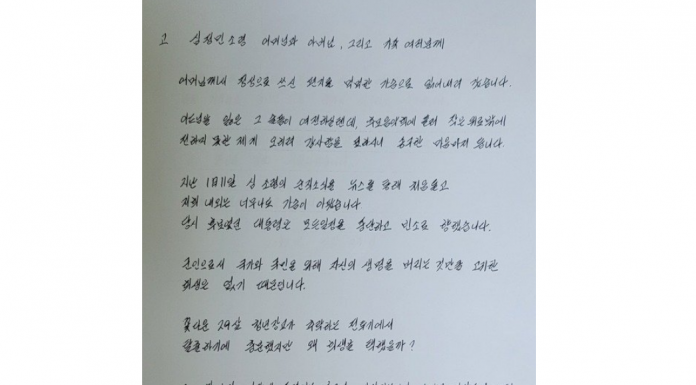 고 심정민 소령 어머님과 아버님, 그리고 가족 여러분께
어머님께서 정성으로 쓰신 편지를 먹먹한 가슴으로 읽어내려 갔습니다.
아드님을 잃은 그 슬픔이 여전하실텐데, 추모음악회에 들러 작은 위로밖에
전하지 못한 제게 오히려 감사함을 표하시니 송구한 마음마저 듭니다.
지난 1월 11일 심 소령의 순직소식을 뉴스를 통해 처음 듣고
저희 내외는 너무나도 가슴이 아팠습니다
당시 후보였던 대통령은 모든 일정을 중단하고 빈소로 향했습니다.
군인으로서 국가와 국민을 위해 자신의 생명을 버리는 것만큼 고귀한
희생은 없기 때문입니다.
꽃다운 29살 청년장교가 추락하는 전투기에서
탈출하기에 충분했지만 왜 희생을 택했을까?